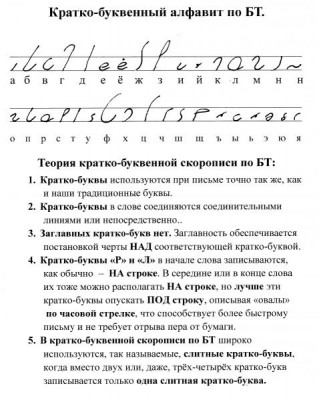 Кратко-буквенный алфавит по БТ.
а б в г д е ё ж з и й к л м н
о п р с т у ф х ц ч ш щ ъ ы ь э ю я
Теория кратко-буквенной скорописи по БТ:
1. Кратко-буквы используются при письме точно так же, как
и наши традиционные буквы.
2. Кратко-буквы в слове соединяются соединительными
линиями или непосредственно..
3. Заглавных кратко-букв нет. Заглавность обеспечивается
постановкой черты НАД соответствующей кратко-буквой.
4. Кратко-буквы «Р» и «Л» в начале слова записываются,
как обычно – НА строке. В середине или в конце слова
их тоже можно располагать НА строке, но лучше эти
кратко-буквы опускать ПОД строку, описывая «овалы»
по часовой стрелке, что способствует более быстрому
письму и не требует отрыва пера от бумаги.
5. В кратко-буквенной скорописи по БТ широко
используются, так называемые, слитные кратко-буквы,
когда вместо двух или, даже, трёх-четырёх кратко-букв
записывается только одна слитная кратко-буква.